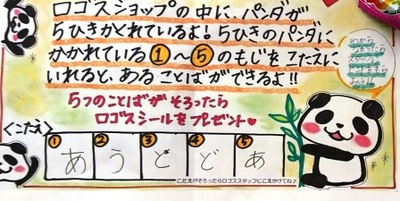 ロゴスショップの中に、パンダが
5ひきかくれているよ！5ひきのパンダに
かかれている①〜⑤のもじをこたえに
いれると、あることばができるよ!!
5つのことばがそろったら
ロゴスシールをプレゼント♥
<こたえ>
① ② ③ ④ ⑤
あ う ど ど あ
こたえがそろったらロゴススタッフにこえかけてね♪